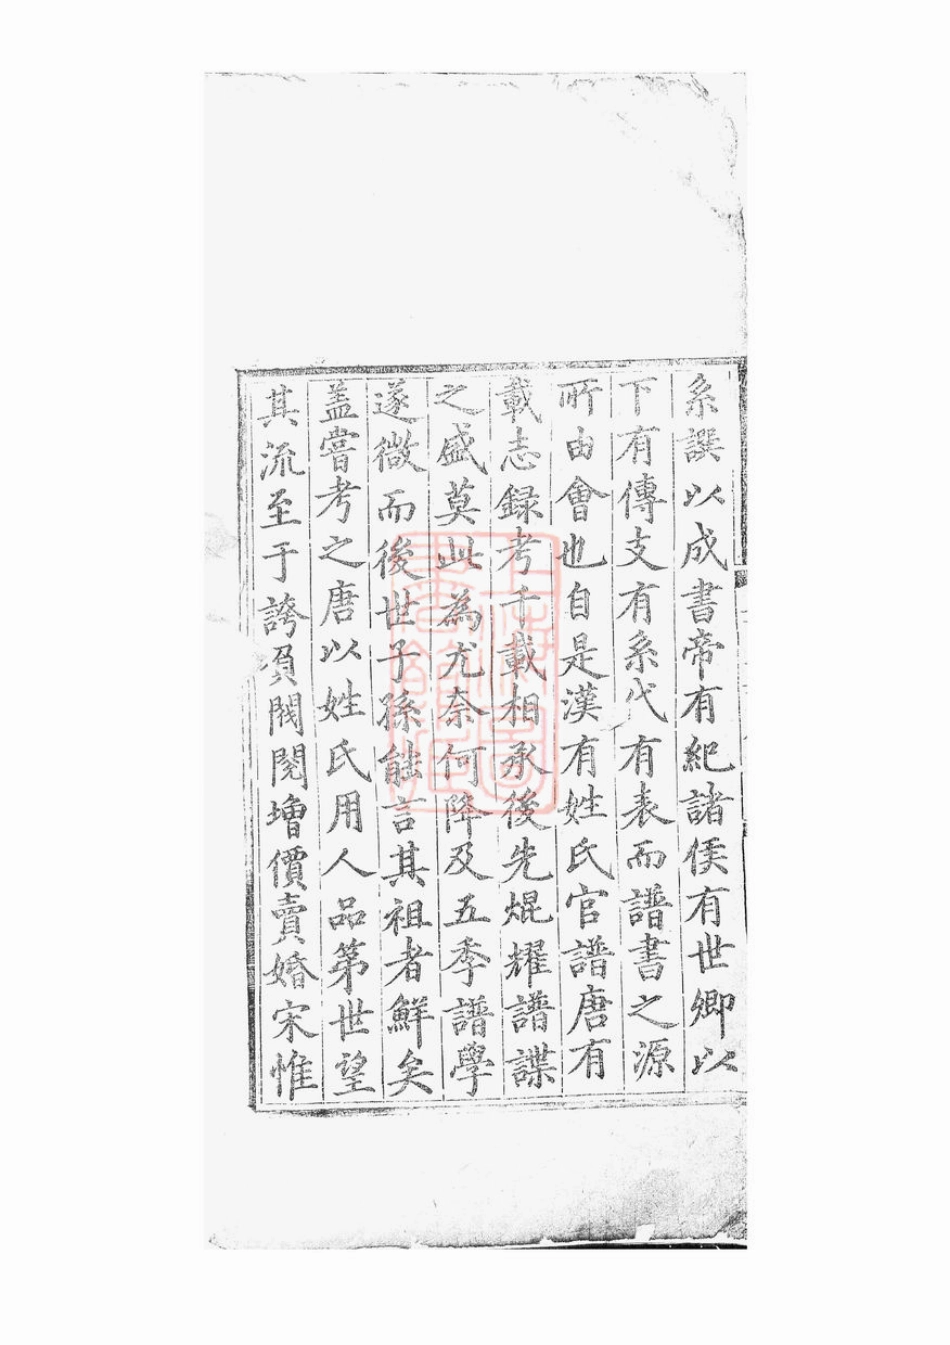 系譔以成書帝有紀諸侯有世卿以
下有傳支有系代有表而譜書之源
所由會也自是漢有姓氏官譜唐有
載志録考千載相承後先焜耀譜諜
之盛莫此為尤奈何降及五季譜學
遂微而後世子孫能言其祖者鮮矣
蓋嘗考之唐以姓氏用人品第世望
其流至于誇負閥閱增價賣婚宋惟